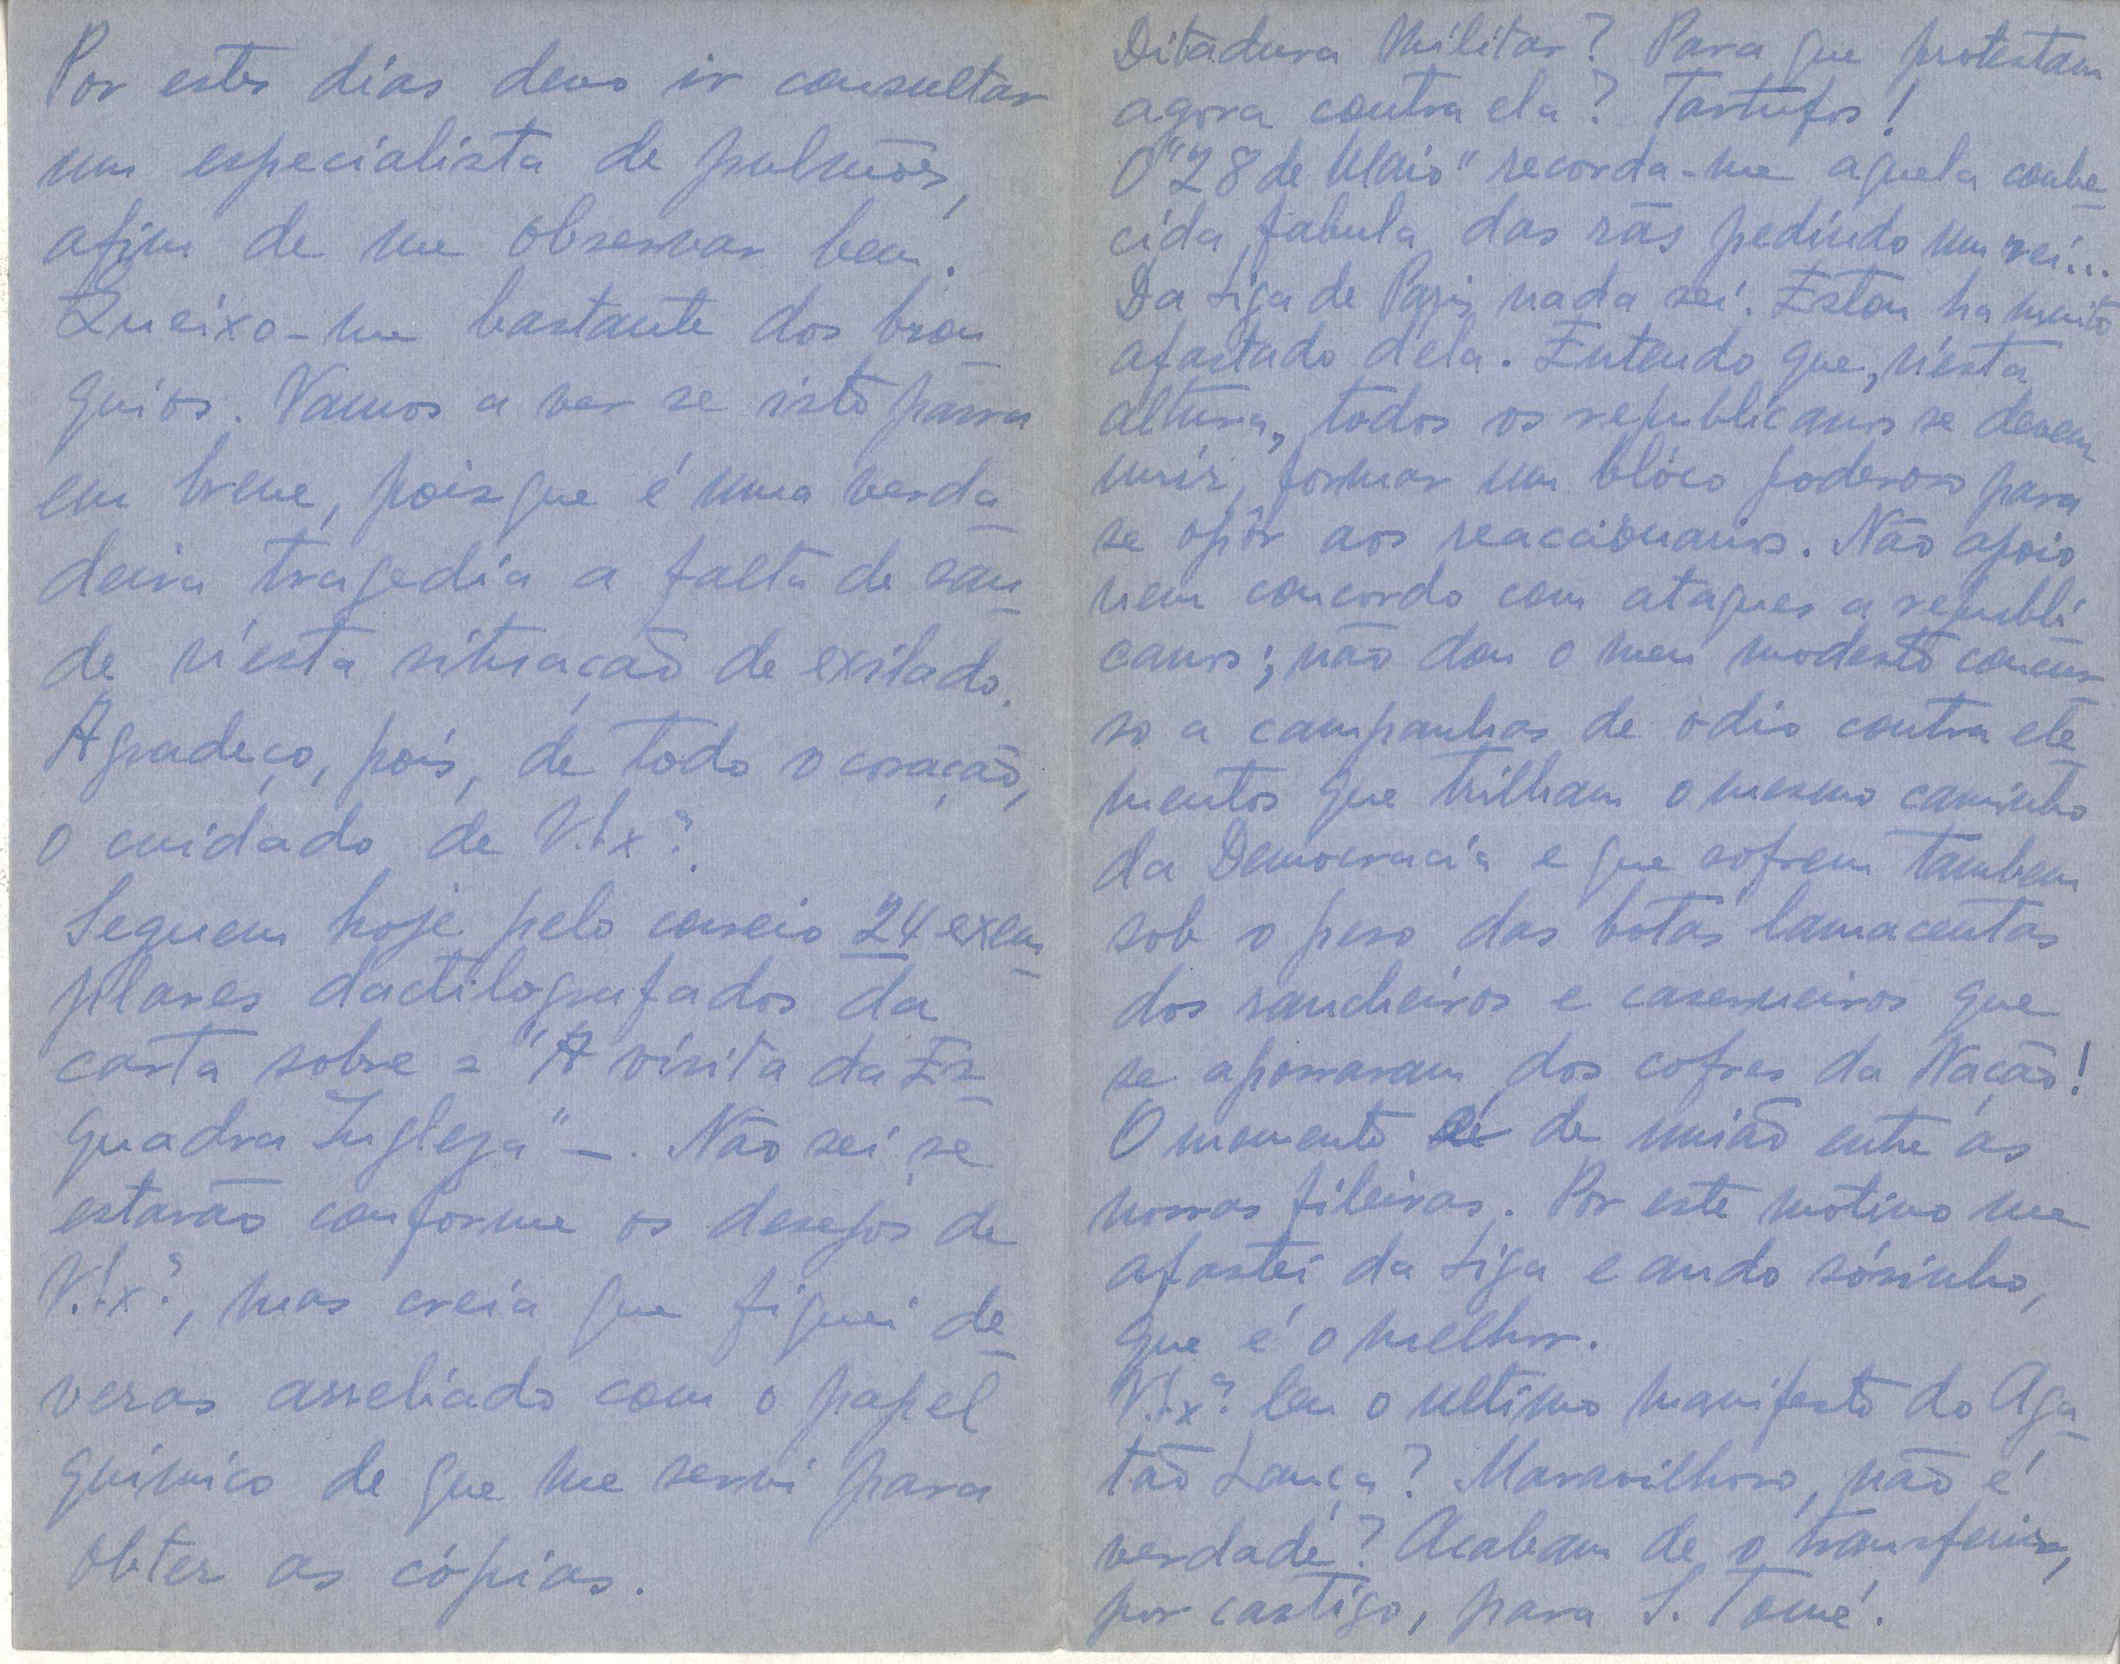 Por estes dias devo ir consultar
um especialista de pulmões,
afim de me observar bem.
Queixo-me bastante dos bron-
quios. Vamos a ver se isto passa
em breve, pois que é uma verda-
deira tragedia a falta de sau-
de n'esta situação de exilado.
Agradeço, pois, de todo o coração,
o cuidado de V. Exª.
Seguem hoje pelo correio 24 exem-
plares dactilografados da
carta sobre = "A visita da Es-
quadra Ingleza" -. Não sei se
estarão conforme os desejos de
V. Exª, mas creia que fiquei de-
veras arreliado com o papel
quimico de que me servi para
obter as cópias.
Ditadura Militar? Para que protestam
agora contra ela? Tartufos!
O "28 de Maio" recorda-me aquela conhe-
cida fabula das rãs pedindo um rei...
Da Liga de Paris nada sei. Estou ha muito
afastado dela. Entendo que, n'esta
altura, todos os republicanos se devem
unir, formar um blóco poderoso para
se opôr aos reaccionarios. Não apoio
nem concordo com ataques a republi-
canos; não dou o meu modesto concur-
so a campanhas de odio contra ele-
mentos que trilham o mesmo caminho
da Democracia e que sofrem tambem
sob o peso das botas lamacentas
dos rancheiros e caserneiros que
se apossaram dos cofres da Nação!
O momento é de união entre as
nossas fileiras. Por este motivo me
afastei da Liga e ando sósinho,
que é o melhor.
V. Exª leu o ultimo manifesto do Aga-
tão Lança? Maravilhoso, não é
verdade? Acabam de o transferir,
por castigo, para S. Tomé.